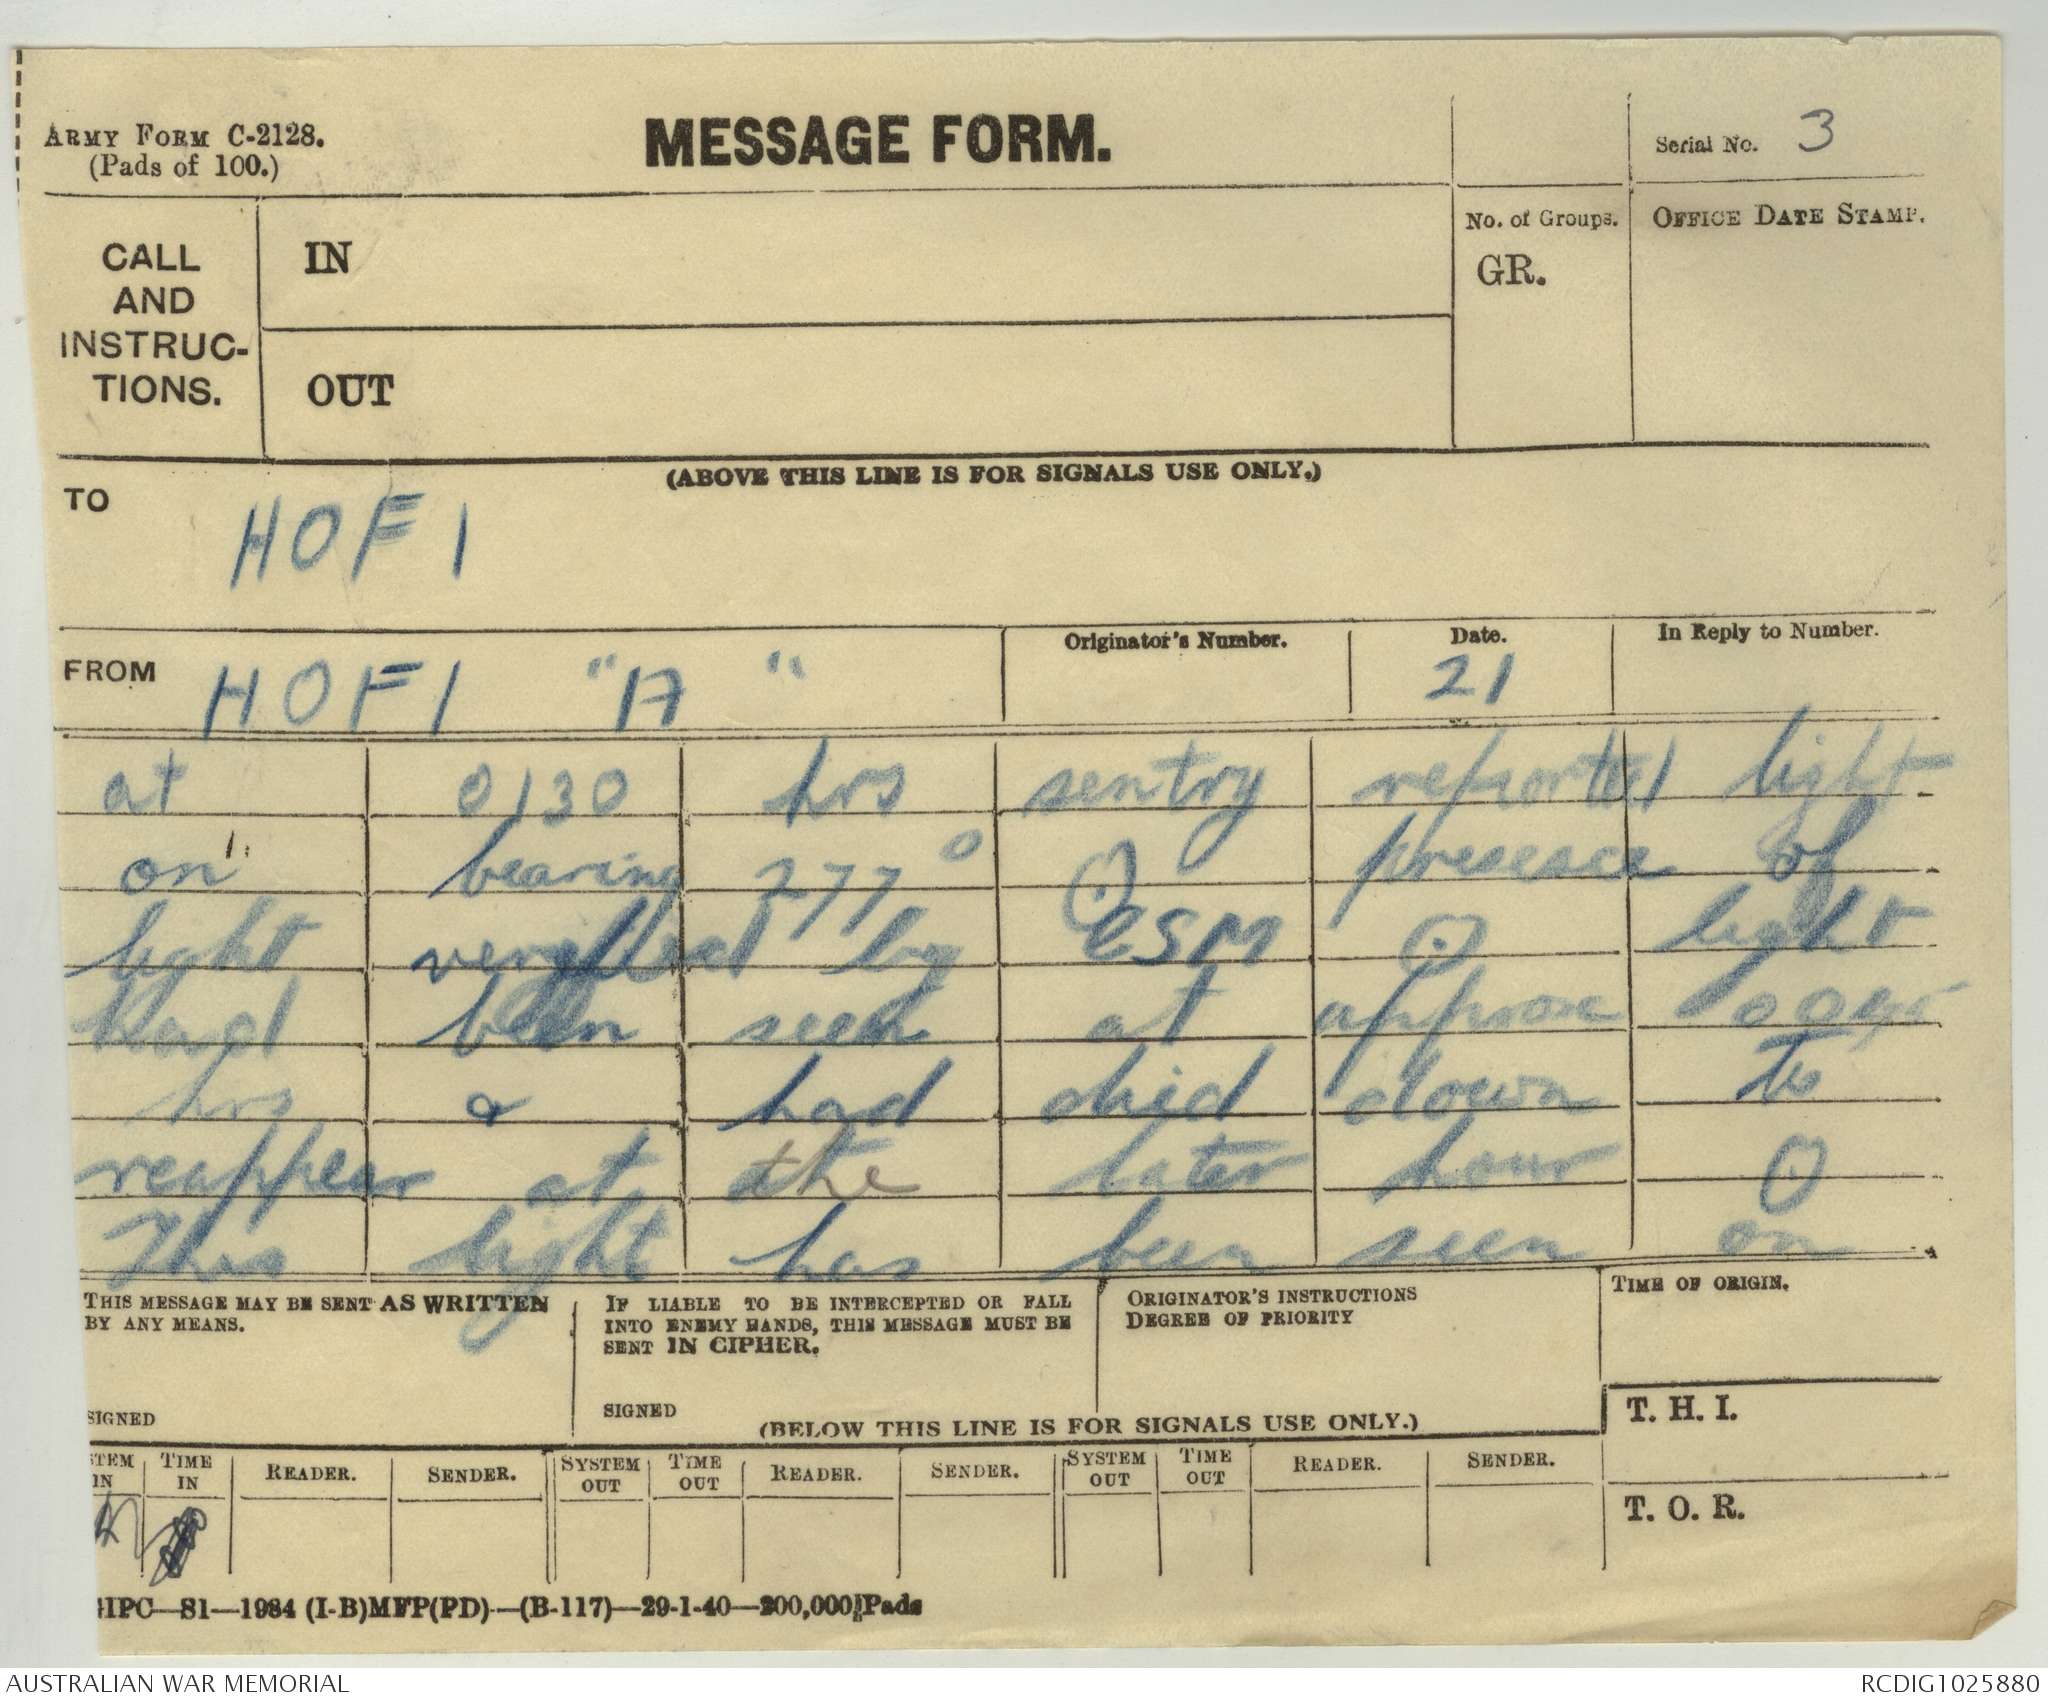 ARMY FORM C-2128.
(Pads of 100.)
MESSAGE FORM.
Serial No. 3
CALL
AND
INSTRUC-
TIONS.
IN
OUT
No. of Groups.
GR.
OFFICE DATE STAMP.
(ABOVE THIS LINE IS FOR SIGNALS USE ONLY.)
TO
HOF1
FROM HOF1 "A"
Originator's Number.
Date.
21
In Reply to Number.
at 0130 hrs sentry reported light
on bearing 277° ⊙ presence of
light by CSM ⊙ light
had been seen at approx
hrs & had died down to
reappear at the later hour ⊙
This light has been seen on
THIS MESSAGE MAY BE SENT AS WRITTEN
BY ANY MEANS.
SIGNED
IF LIABLE TO BE INTERCEPTED OR FALL
INTO ENEMY HANDS, THIS MESSAGE MUST BE
SENT IN CIPHER.
SIGNED
ORIGINATOR'S INSTRUCTIONS
DEGREE OF PRIORITY
TIME OF ORIGIN.
T. H. I.
(BELOW THIS LINE IS FOR SIGNALS USE ONLY.)
STEM IN TIME IN READER. SENDER. SYSTEM OUT TIME OUT READER. SENDER. SYSTEM OUT TIME OUT READER. SENDER.
T. O. R.
HIPC—S1—1984 (I-B)MFP(PD)—(B-117)—29-1-40—200,000 Pads
AUSTRALIAN WAR MEMORIAL
RCDIG1025880